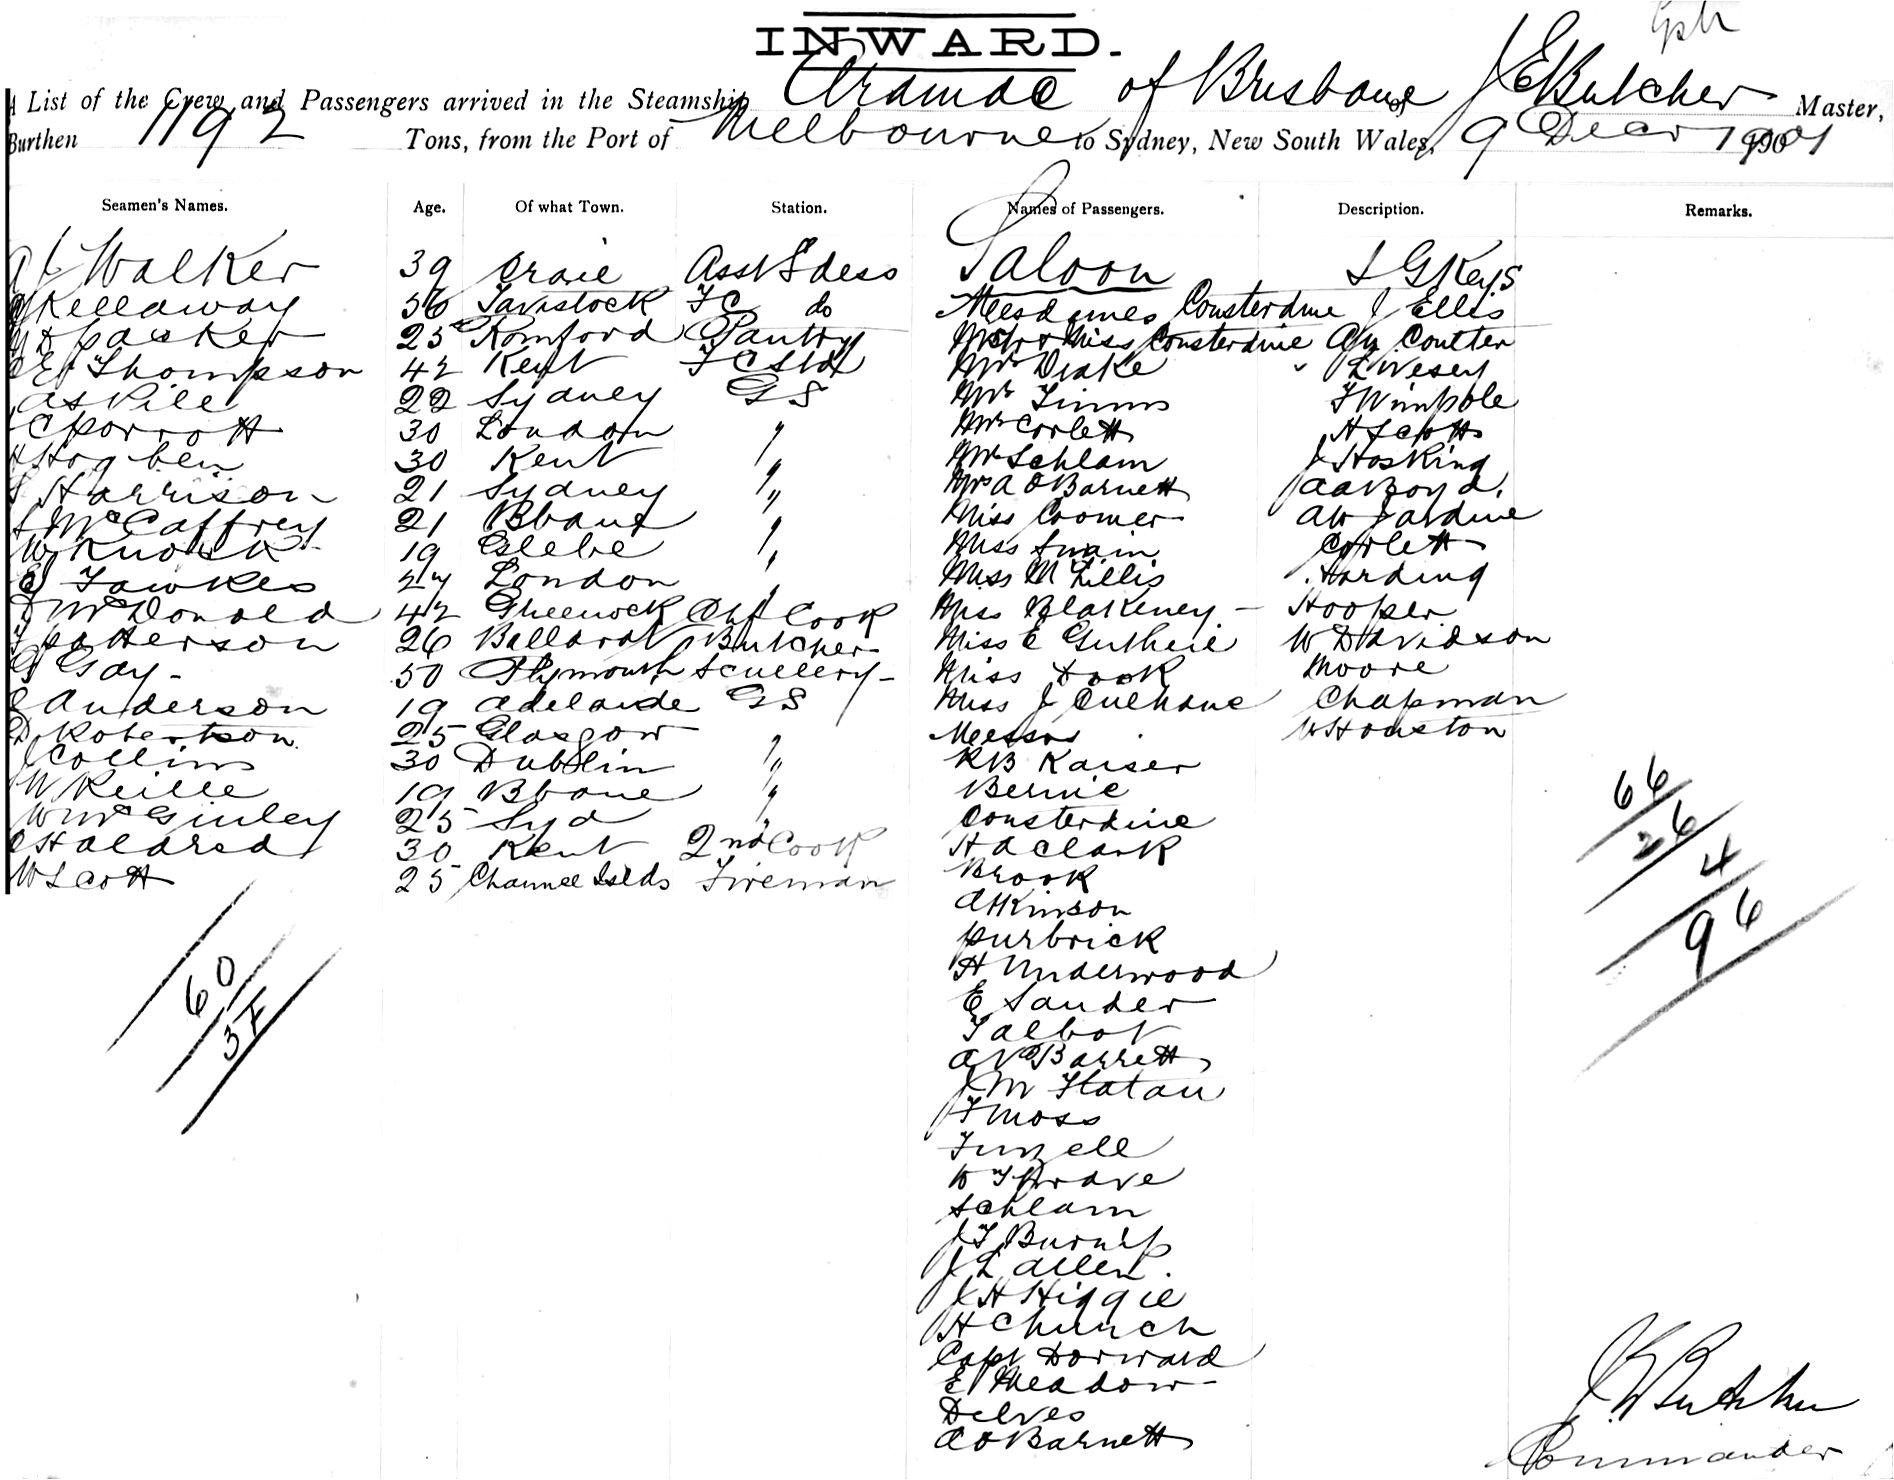 INWARD.
A List of the Crew and Passengers arrived in the Steamship Aramac of Brisbane of J E Butcher Master,
Burthen 1192 Tons, from the Port of Melbourne to Sydney, New South Wales, 9 Decr 1901
Seamen's Names. Age. Of what Town. Station. Names of Passengers. Description. Remarks.
Walker 39 Asst Sdess
Kellaway 56 Tavistock FC do
Packer 25 Romford Pantry
Thompson 42 Kent FC Std
Askill 22 Sydney GS
C Parrott 30 London "
Hogben 30 Kent "
Harrison 21 Sydney "
McCaffrey 21 Bbane "
W 19 Glebe "
Fawkes 27 London "
McDonald 42 Greenock Chf Cook
Patterson 26 Ballarat Butcher
G Gay 50 Plymouth Scullery
Anderson 19 Adelaide GS
D Robertson 25 Glasgow "
J Collins 30 Dublin "
W Reille 19 Bbane "
W McGinley 25 Syd "
C Haldred 30 Kent 2nd Cook
W Scott 25 Channel Islds Fireman
60
Saloon
Mesdames Consterdine
Mstr & Miss Consterdine
Mrs Drake
Mrs Timms
Mrs Corlett
Mrs Schlam
Mrs A O Barnett
Miss Cromer
Miss Swain
Miss M Lillis
Miss Blakeney
Miss E Guthrie
Miss Hook
Miss J Culhane
Messrs
R B Kaiser
Bernie
Consterdine
H A Clark
Brook
Atkinson
Purbrick
H Underwood
E Sander
Talbot
Barrett
J M Flatau
F Moss
W T Prave
Schlam
J T Burn
J L Allen.
J H Higgie
H Church
Capt Dorward
E Meadow
Delves
A O Barnett
S G Keys
J Ellis
Coutter
Livesey
F Wimpole
H Scott
J Hosking
A A Boyd.
A W Jardine
Corlett
Harding
Hooper
W Davidson
Moore
Chapman
W Houston
66
26
4
96
J E Butcher
Commander